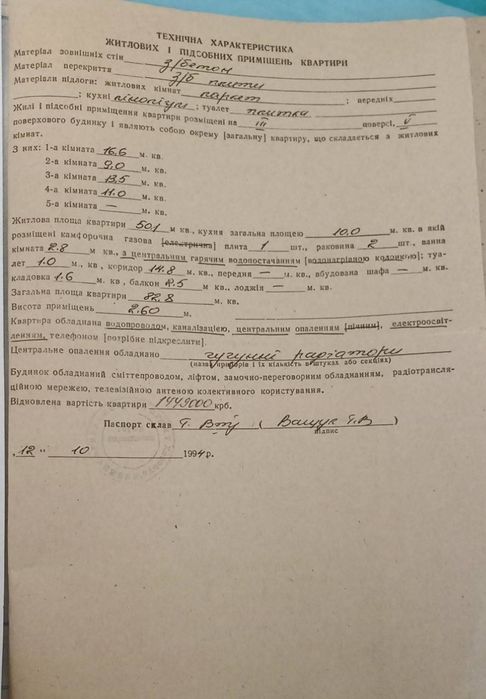 ТЕХНІЧНА ХАРАКТЕРИСТИКА
ЖИТЛОВИХ І ПІДСОБНИХ ПРИМІЩЕНЬ КВАРТИРИ
Матеріал зовнішніх стін з/бетон
Матеріал перекриття з/б плити
Матеріали підлоги: житлових кімнат паркет ; передніх
; кухні лінолеум ; туалет плитка
Жилі і підсобні приміщення квартири розміщені на III поверсі, V
поверхового будинку і являють собою окрему [загальну] квартиру, що складається з житлових
кімнат.
З них: 1-а кімната 16.6 м. кв.
2-а кімната 9.0 м. кв.
3-а кімната 13.5 м. кв.
4-а кімната 11.0 м. кв.
5-а кімната — м. кв.
Житлова площа квартири 50.1 м кв., кухня загальна площею 10.0 м. кв. в якій
розміщені камфорочна газова [електрична] плита 1 шт., раковина 2 шт., ванна
кімната 2.8 м кв., з центральним гарячим водопостачанням [водонагріваною колонкою]; туа-
лет 1.0 м., кв , коридор 14.8 м. кв., передня — м. кв., вбудована шафа — м. кв.
кладовка 1.6 м. кв , балкон 2.5 м кв., лоджія — м. кв.
Загальна площа квартири 82.8 м. кв.
Висота приміщень 2.60 м.
Квартира обладнана водопроводом, каналізацією, центральним опаленням [пічним], електроосвіт-
ленням, телефоном [потрібне підкреслити].
Центральне опалення обладнано радіатори
(назва приборів і їх кількість в штуках або секціях)
Будинок обладнаний сміттепроводом, ліфтом, замочно-переговорним обладнанням, радіотрансля-
ційною мережею, телевізійною антеною колективного користування.
Відновлена вартість квартири 1449000 крб.
Паспорт склав ( )
підпис
„12" 10 1994 р.